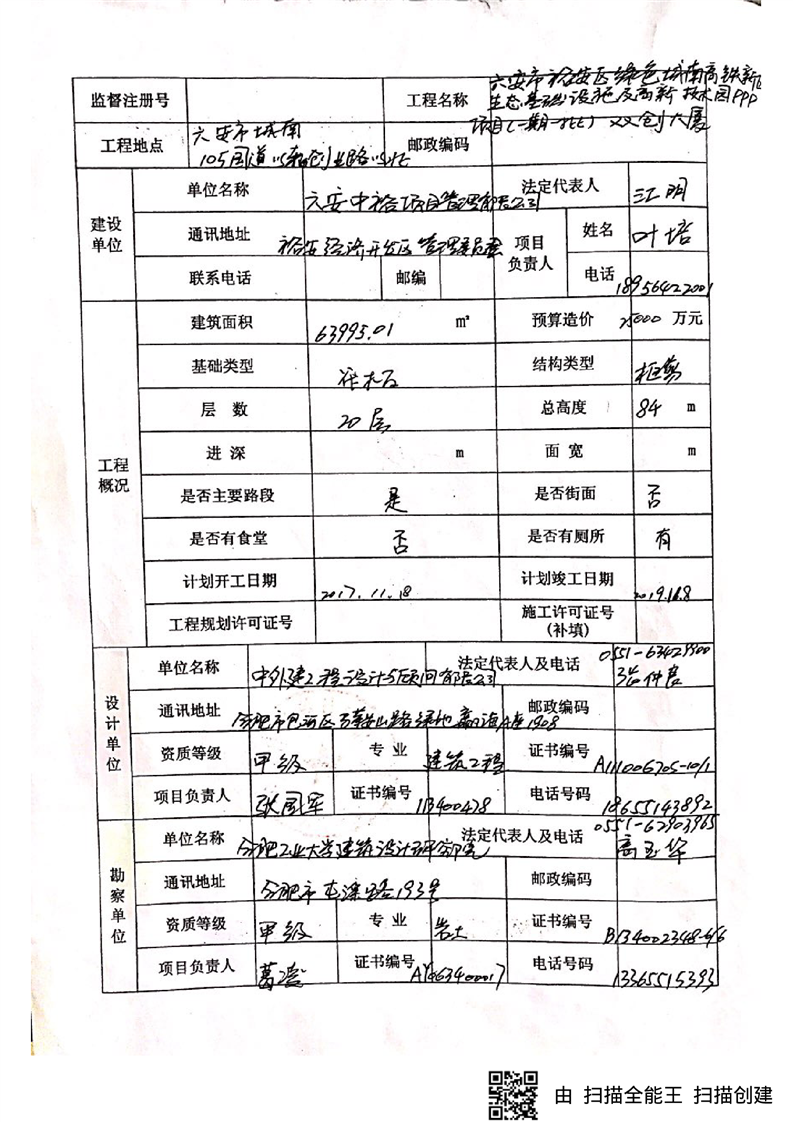 监督注册号 工程名称 六安市裕安区绿色城南高铁新区
生态基础设施及高新技术园PPP
项目(一期一批) 双创大厦
工程地点 六安市城南 邮政编码
105国道以 创业路以北
建设单位 单位名称 六安中裕项目管理有限公司 法定代表人 江明
通讯地址 裕安经济开发区管理委员会 项目负责人 姓名 叶培
联系电话 邮编 电话 18956422001
工程概况 建筑面积 63995.01 m² 预算造价 25000 万元
基础类型 结构类型 框剪
层 数 20层 总高度 84 m
进 深 m 面 宽 m
是否主要路段 是 是否街面 否
是否有食堂 否 是否有厕所 有
计划开工日期 2017.11.18 计划竣工日期
工程规划许可证号 施工许可证号
(补填)
设计单位 单位名称 中外建工程设计与顾问有限公司 法定代表人及电话 0551-63429900
通讯地址 合肥市包河区 路绿地赢海A座1908 邮政编码
资质等级 甲级 专 业 建筑工程 证书编号 A111006705-10/1
项目负责人 张国军 证书编号 113400478 电话号码 18655143892
勘察单位 单位名称 合肥工业大学建筑设计研究院 法定代表人及电话 0551-62903965
高玉华
通讯地址 合肥市屯溪路193号 邮政编码
资质等级 甲级 专 业 岩土 证书编号 B134002348-6/6
项目负责人 证书编号 AY063400017 电话号码 13365515393
由 扫描全能王 扫描创建